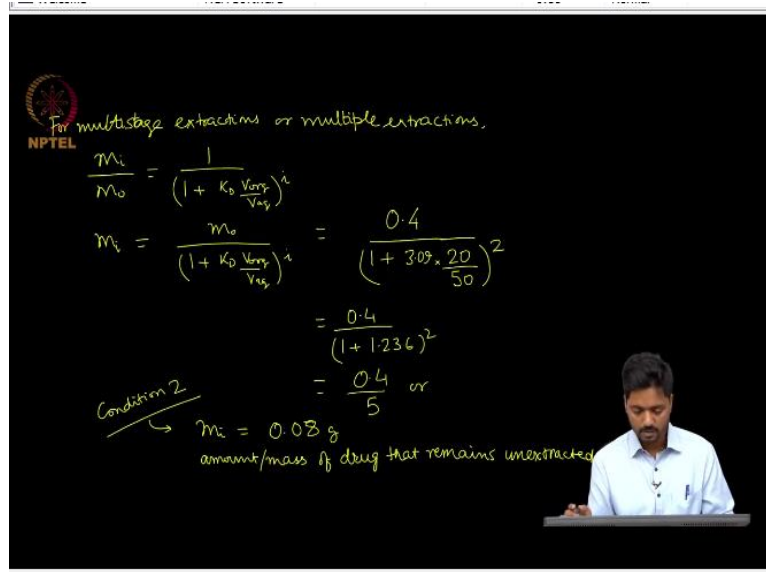 NPTEL
For multistage extractions or multiple extractions,
mi/mo = 1/(1 + KD Vorg/Vaq)^i
mi = mo/(1 + KD Vorg/Vaq)^i = 0.4/(1 + 3.09 × 20/50)^2
= 0.4/(1 + 1.236)^2
= 0.4/5 or
Condition 2
↳ mi = 0.08 g
amount/mass of drug that remains unextracted